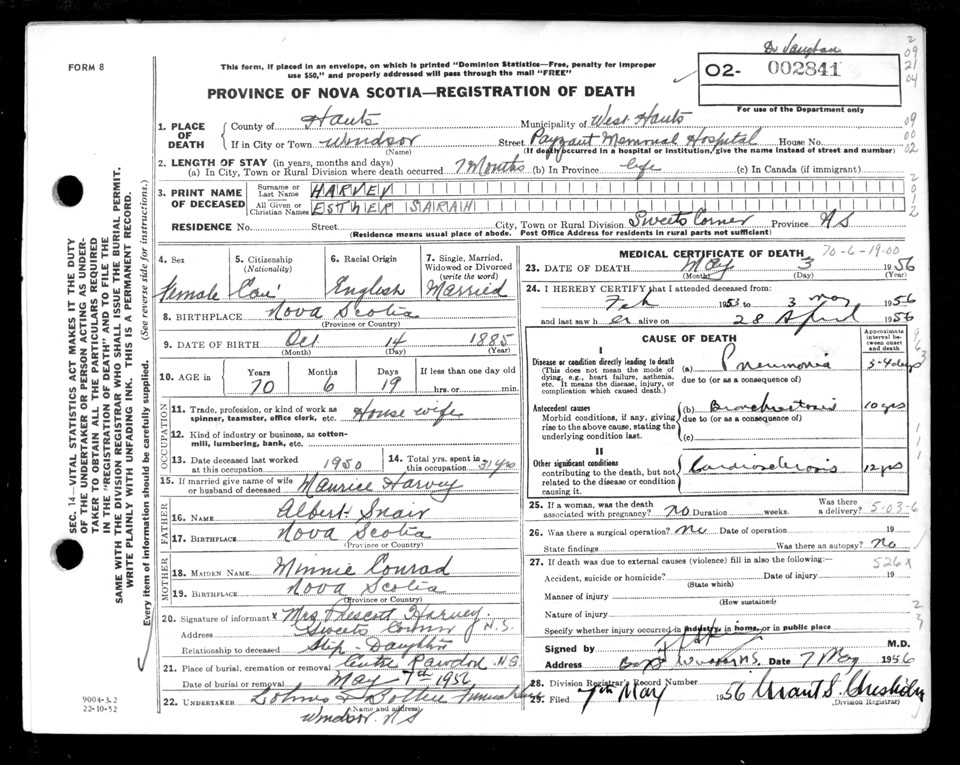 Dr Vaughan
FORM 8
This form, if placed in an envelope, on which is printed "Dominion Statistics—Free, penalty for improper
use $50," and properly addressed will pass through the mail "FREE"
02- 002841
PROVINCE OF NOVA SCOTIA—REGISTRATION OF DEATH
For use of the Department only
1. PLACE OF DEATH
County of Hants Municipality of West Hants
If in City or Town Windsor Street Payzant Memorial Hospital House No.
(Name) (If death occurred in a hospital or institution, give the name instead of street and number)
2. LENGTH OF STAY (in years, months and days)
(a) In City, Town or Rural Division where death occurred 7 Months (b) In Province life (c) In Canada (if immigrant)
3. PRINT NAME OF DECEASED
Surname or Last Name HARVEY
All Given or Christian Names ESTHER SARAH
RESIDENCE No. Street City, Town or Rural Division Sweets Corner Province NS
(Residence means usual place of abode. Post Office Address for residents in rural parts not sufficient)
4. Sex Female
5. Citizenship (Nationality) Can'
6. Racial Origin English
7. Single, Married, Widowed or Divorced (write the word) Married
8. BIRTHPLACE Nova Scotia
(Province or Country)
9. DATE OF BIRTH Oct 14 1885
(Month) (Day) (Year)
10. AGE in Years Months Days If less than one day old
70 6 19 hrs. or min.
OCCUPATION
11. Trade, profession, or kind of work as spinner, teamster, office clerk, etc. House wife
12. Kind of industry or business, as cotton-mill, lumbering, bank, etc.
13. Date deceased last worked at this occupation 1950
14. Total yrs. spent in this occupation 31 yrs
15. If married give name of wife or husband of deceased Maurice Harvey
FATHER
16. NAME Albert Snair
17. BIRTHPLACE Nova Scotia
(Province or Country)
MOTHER
18. MAIDEN NAME Minnie Conrad
19. BIRTHPLACE Nova Scotia
(Province or Country)
20. Signature of informant x Mrs Prescott Harvey
Address Sweets Corner N.S.
Relationship to deceased Step-Daughter
21. Place of burial, cremation or removal Centre Rawdon N.S.
Date of burial or removal May 7th 1956
22. UNDERTAKER
(Name and address)
Windsor. NS
MEDICAL CERTIFICATE OF DEATH 70-6-19-00
23. DATE OF DEATH May 3 1956
(Month) (Day) (Year)
24. I HEREBY CERTIFY that I attended deceased from:
Feb 1953 to 3 May 1956
and last saw h er alive on 28 April 1956
CAUSE OF DEATH
Approximate interval between onset and death
I
Disease or condition directly leading to death
(This does not mean the mode of dying, e.g., heart failure, asthenia, etc. It means the disease, injury, or complication which caused death.)
(a) Pneumonia 3-4 days
due to (or as a consequence of)
Antecedent causes
Morbid conditions, if any, giving rise to the above cause, stating the underlying condition last.
(b) Bronchiectasis 10 yrs
due to (or as a consequence of)
(c)
II
Other significant conditions
contributing to the death, but not related to the disease or condition causing it.
Cardiosclerosis 12 yrs
25. If a woman, was the death associated with pregnancy? no Duration weeks. Was there a delivery? 5-03-6
26. Was there a surgical operation? no Date of operation 19
State findings Was there an autopsy? No
27. If death was due to external causes (violence) fill in also the following: 526x
Accident, suicide or homicide? Date of injury 19
(State which)
Manner of injury
(How sustained)
Nature of injury
Specify whether injury occurred in industry, in home, or in public place
Signed by M.D.
Address Windsor N.S. Date 7 May 1956
28. Division Registrar's Record Number
29. Filed 7th May 1956
(Division Registrar)
SEC. 14—VITAL STATISTICS ACT MAKES IT THE DUTY
OF THE UNDERTAKER OR PERSON ACTING AS UNDER-
TAKER TO OBTAIN ALL THE PARTICULARS REQUIRED
IN THE "REGISTRATION OF DEATH" AND TO FILE THE
SAME WITH THE DIVISION REGISTRAR WHO SHALL ISSUE THE BURIAL PERMIT.
WRITE PLAINLY WITH UNFADING INK. THIS IS A PERMANENT RECORD.
Every item of information should be carefully supplied. (See reverse side for instructions.)
9004-3.2
22-10-52